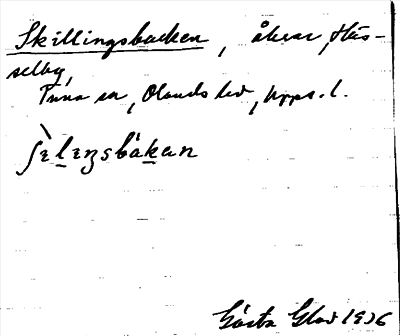 Skillingsbacken, åkrar, Häs-
selby,
Tuna sn, Olands hd, Upps. l.
ʃèlɪŋsbakan
Gösta Glad 1936